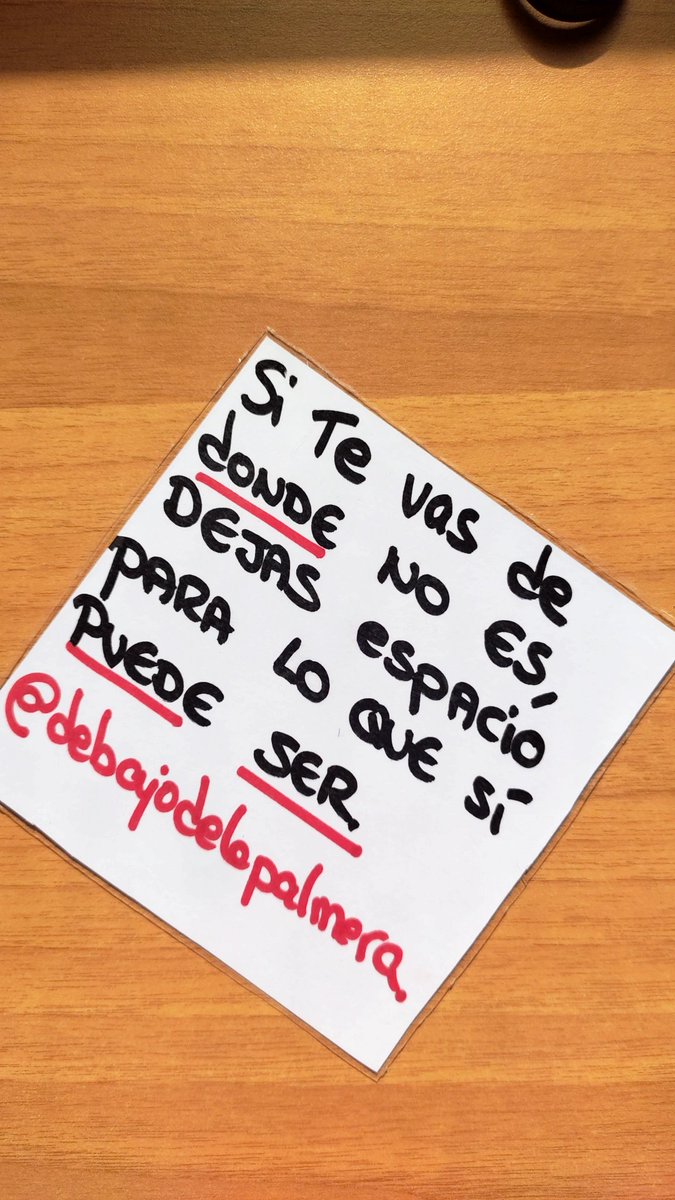 Si Te vas de
dONDE NO ES,
DEJAS esPACiO
PARA LO QUE SÍ
PUEDE SER.
@debajodelapalmera.